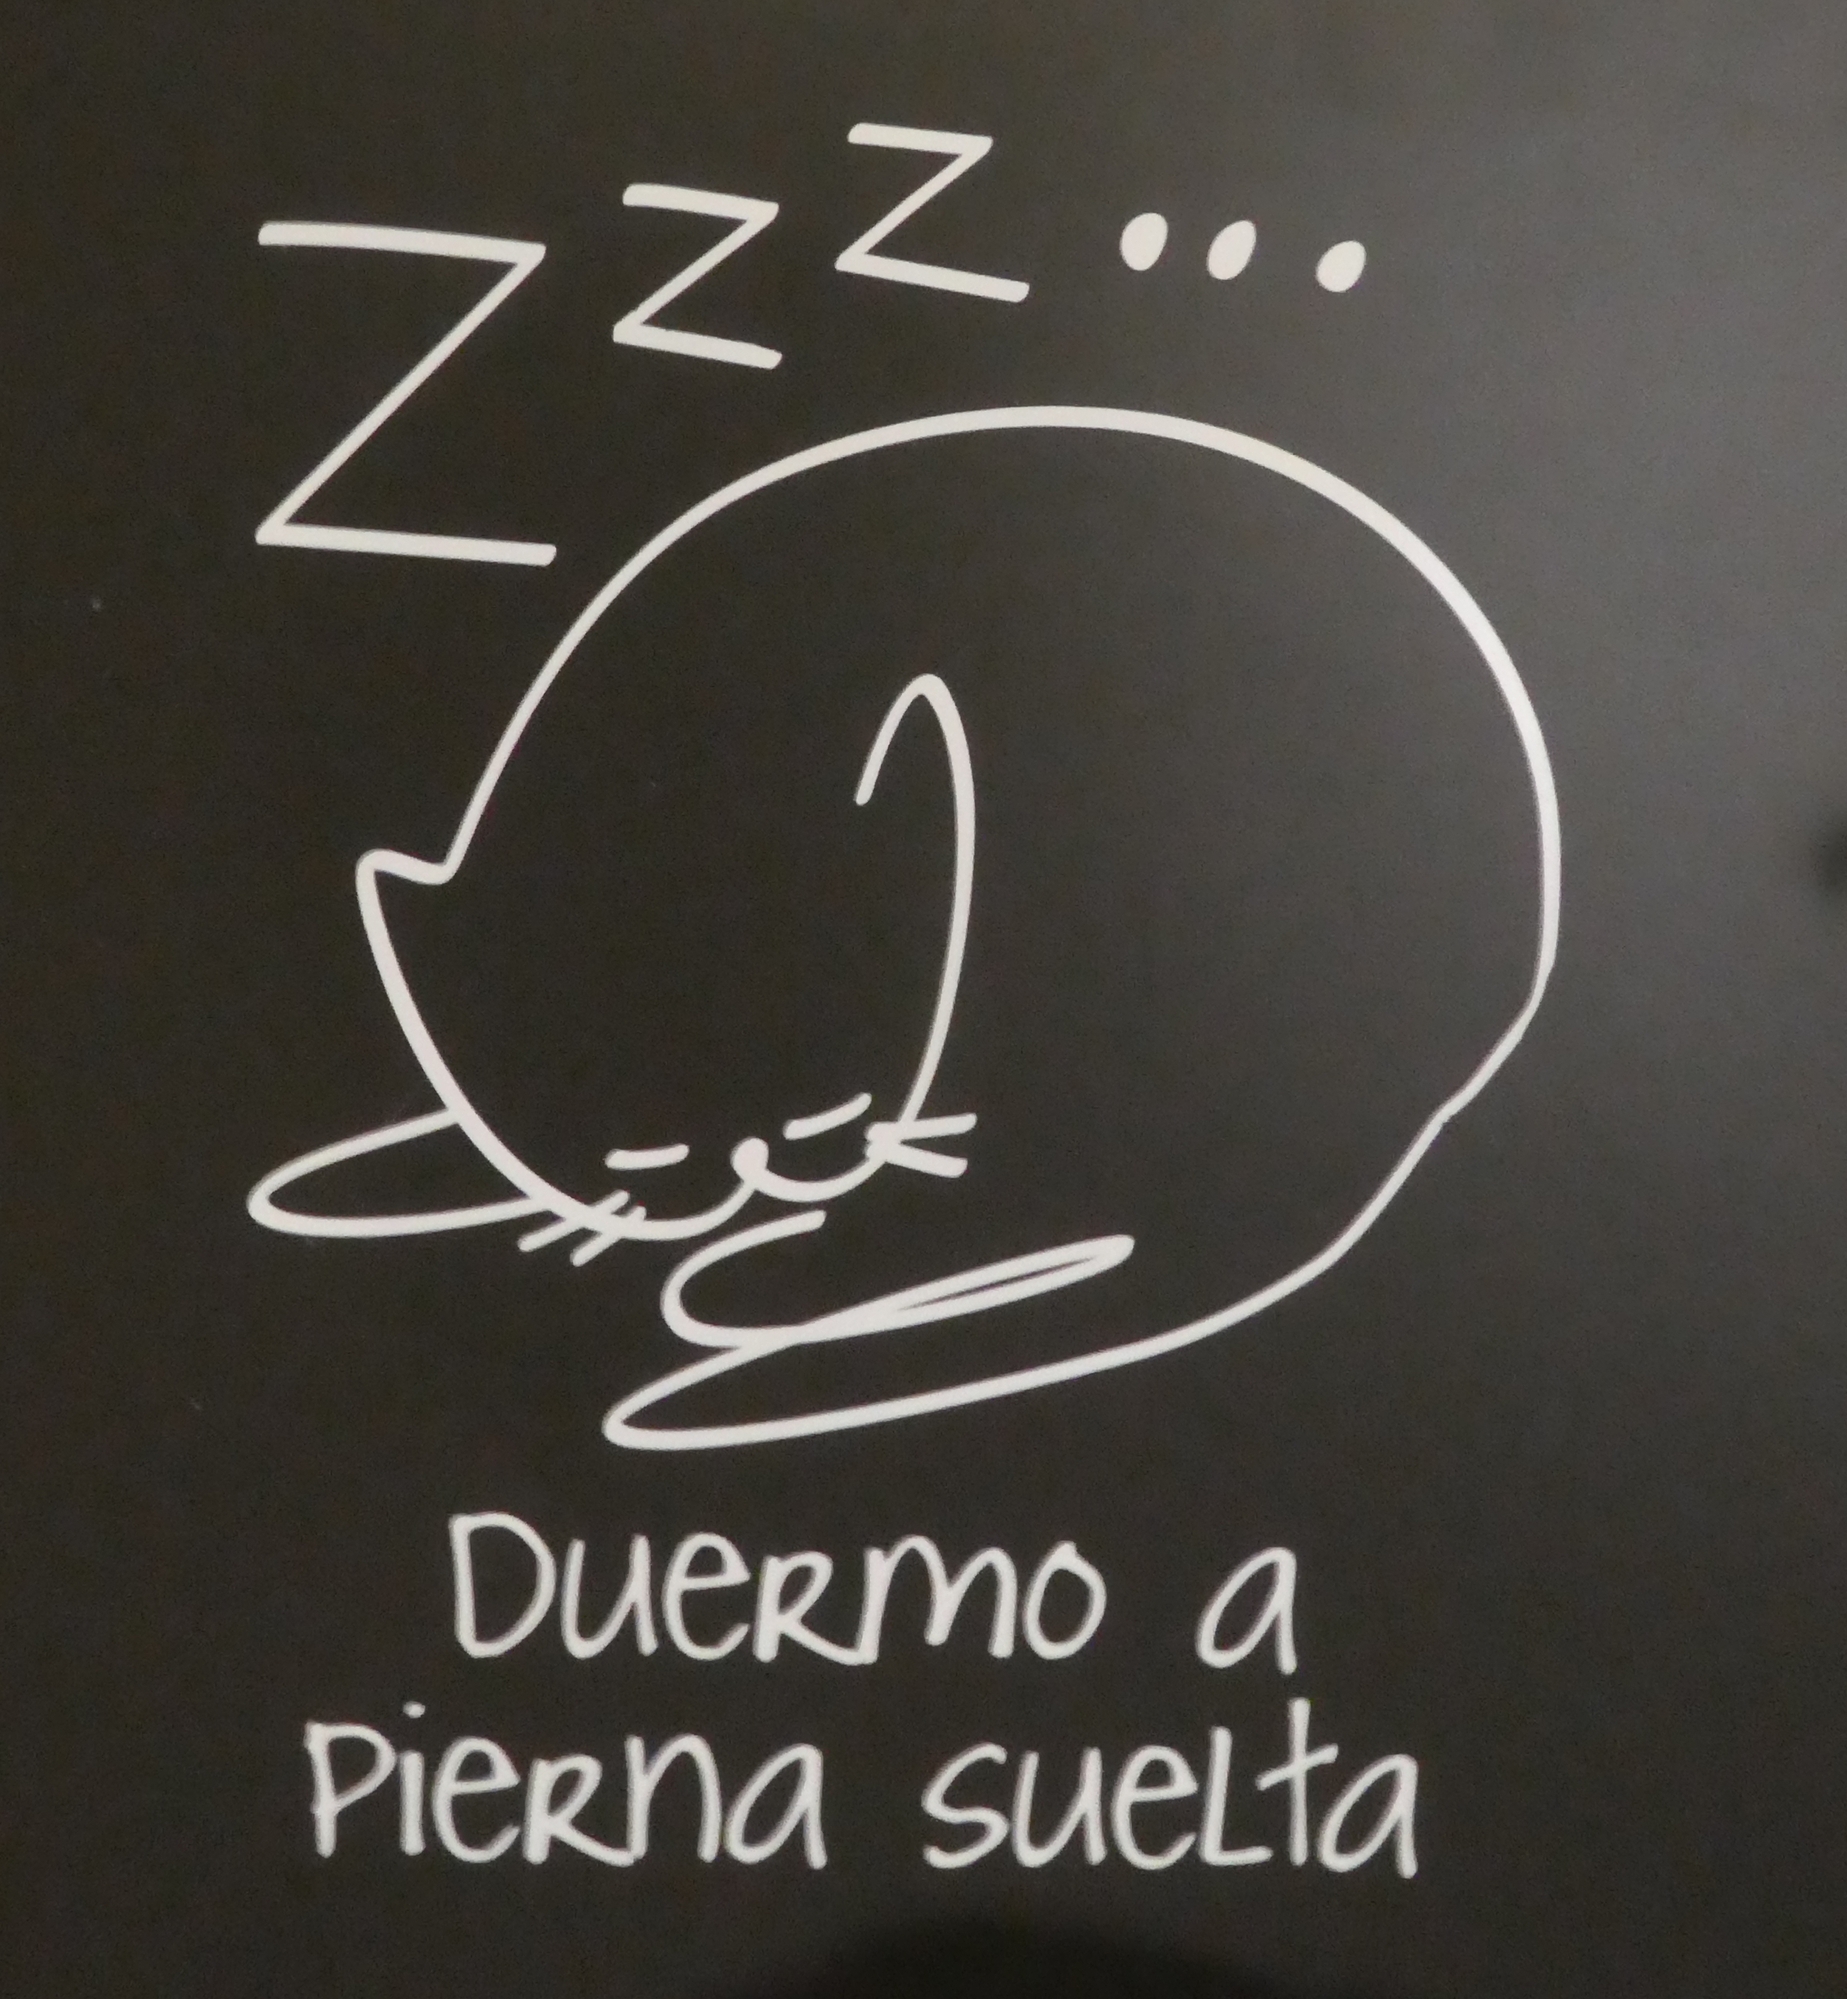 Zzz...
Duermo a
pierna suelta